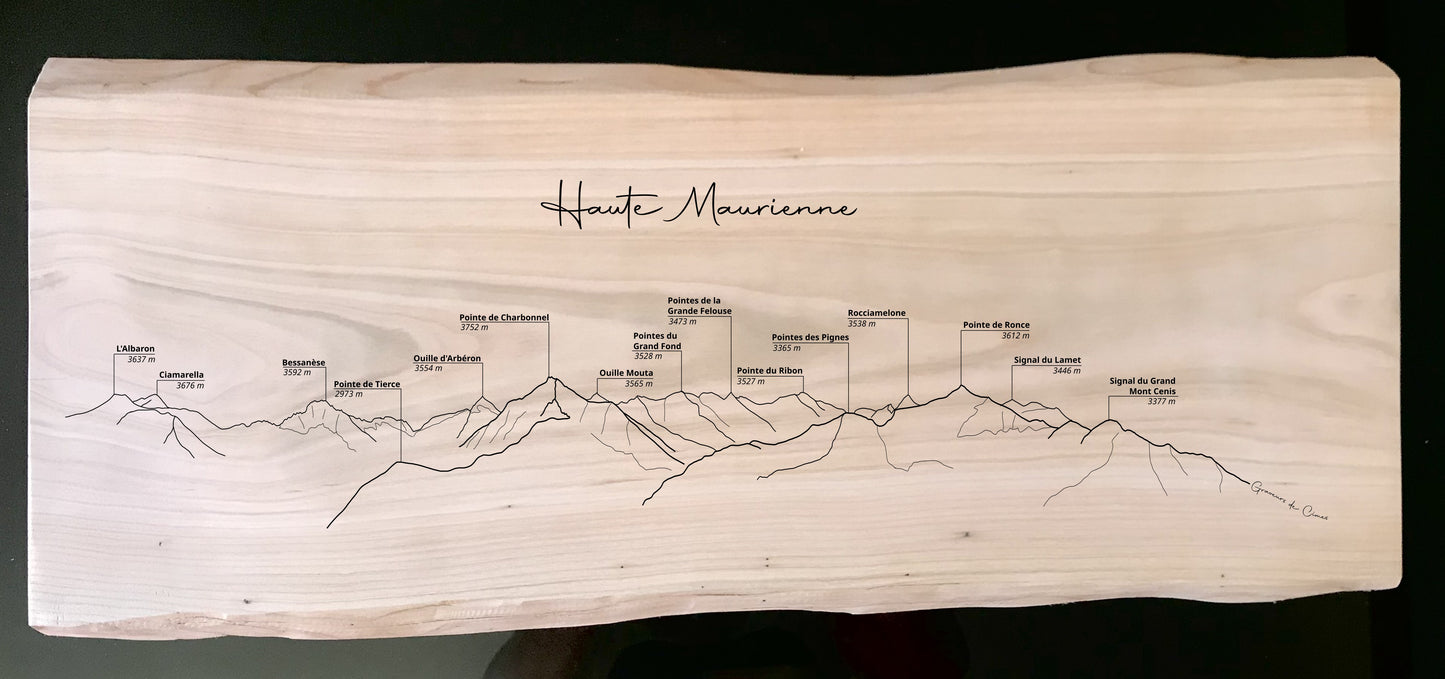 Haute Maurienne
L'Albaron
3637 m
Ciamarella
3676 m
Bessanèse
3592 m
Pointe de Tierce
2973 m
Ouille d'Arbéron
3554 m
Pointe de Charbonnel
3752 m
Ouille Mouta
3565 m
Pointes du
Grand Fond
3528 m
Pointes de la
Grande Felouse
3473 m
Pointe du Ribon
3527 m
Pointes des Pignes
3365 m
Rocciamelone
3538 m
Pointe de Ronce
3612 m
Signal du Lamet
3446 m
Signal du Grand
Mont Cenis
3377 m
Graveurs de Cimes